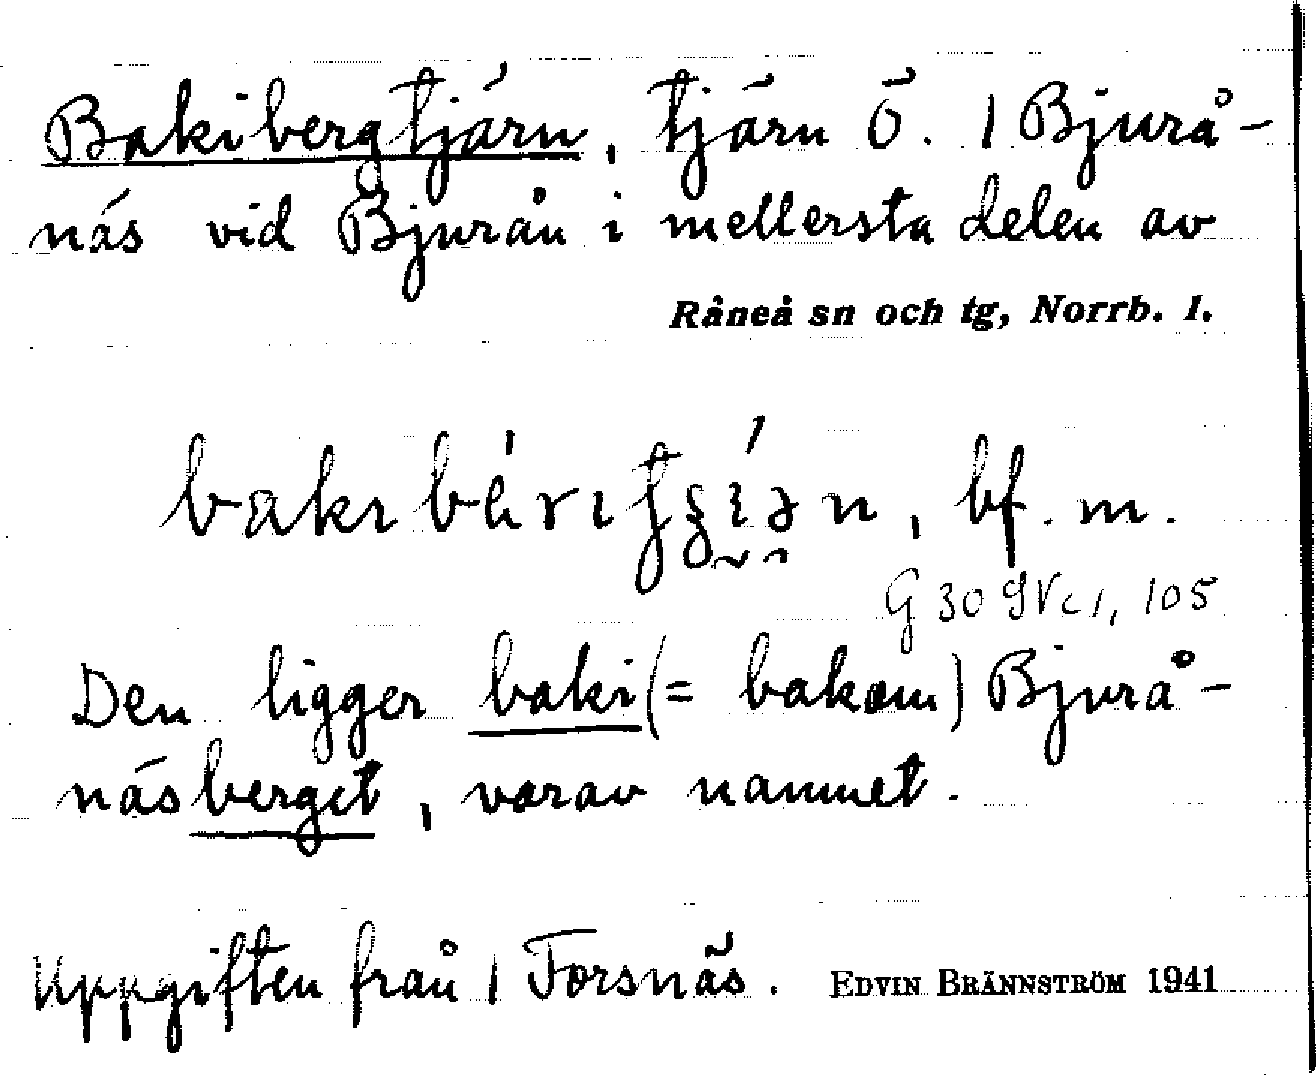 Bakibergtjärn, tjärn Ö. 1 Bjurå-
näs vid Bjurån i mellersta delen av
Råneå sn och tg, Norrb. l.
bf. m.
G 30 9 V c 1, 105
Den ligger baki (= bakom) Bjurå-
näsberget, varav namnet.
Uppgiften från 1 Forsnäs. EDVIN BRÄNNSTRÖM 1941